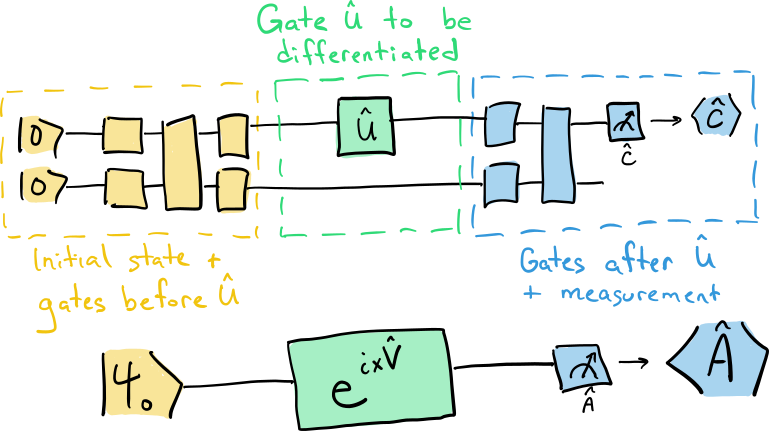 Gate Û to be
differentiated
0
Û
Ĉ
Ĉ
0
Initial state +
gates before Û
Gates after Û
+ measurement
ψ₀
e^{ixV̂}
Â
Â